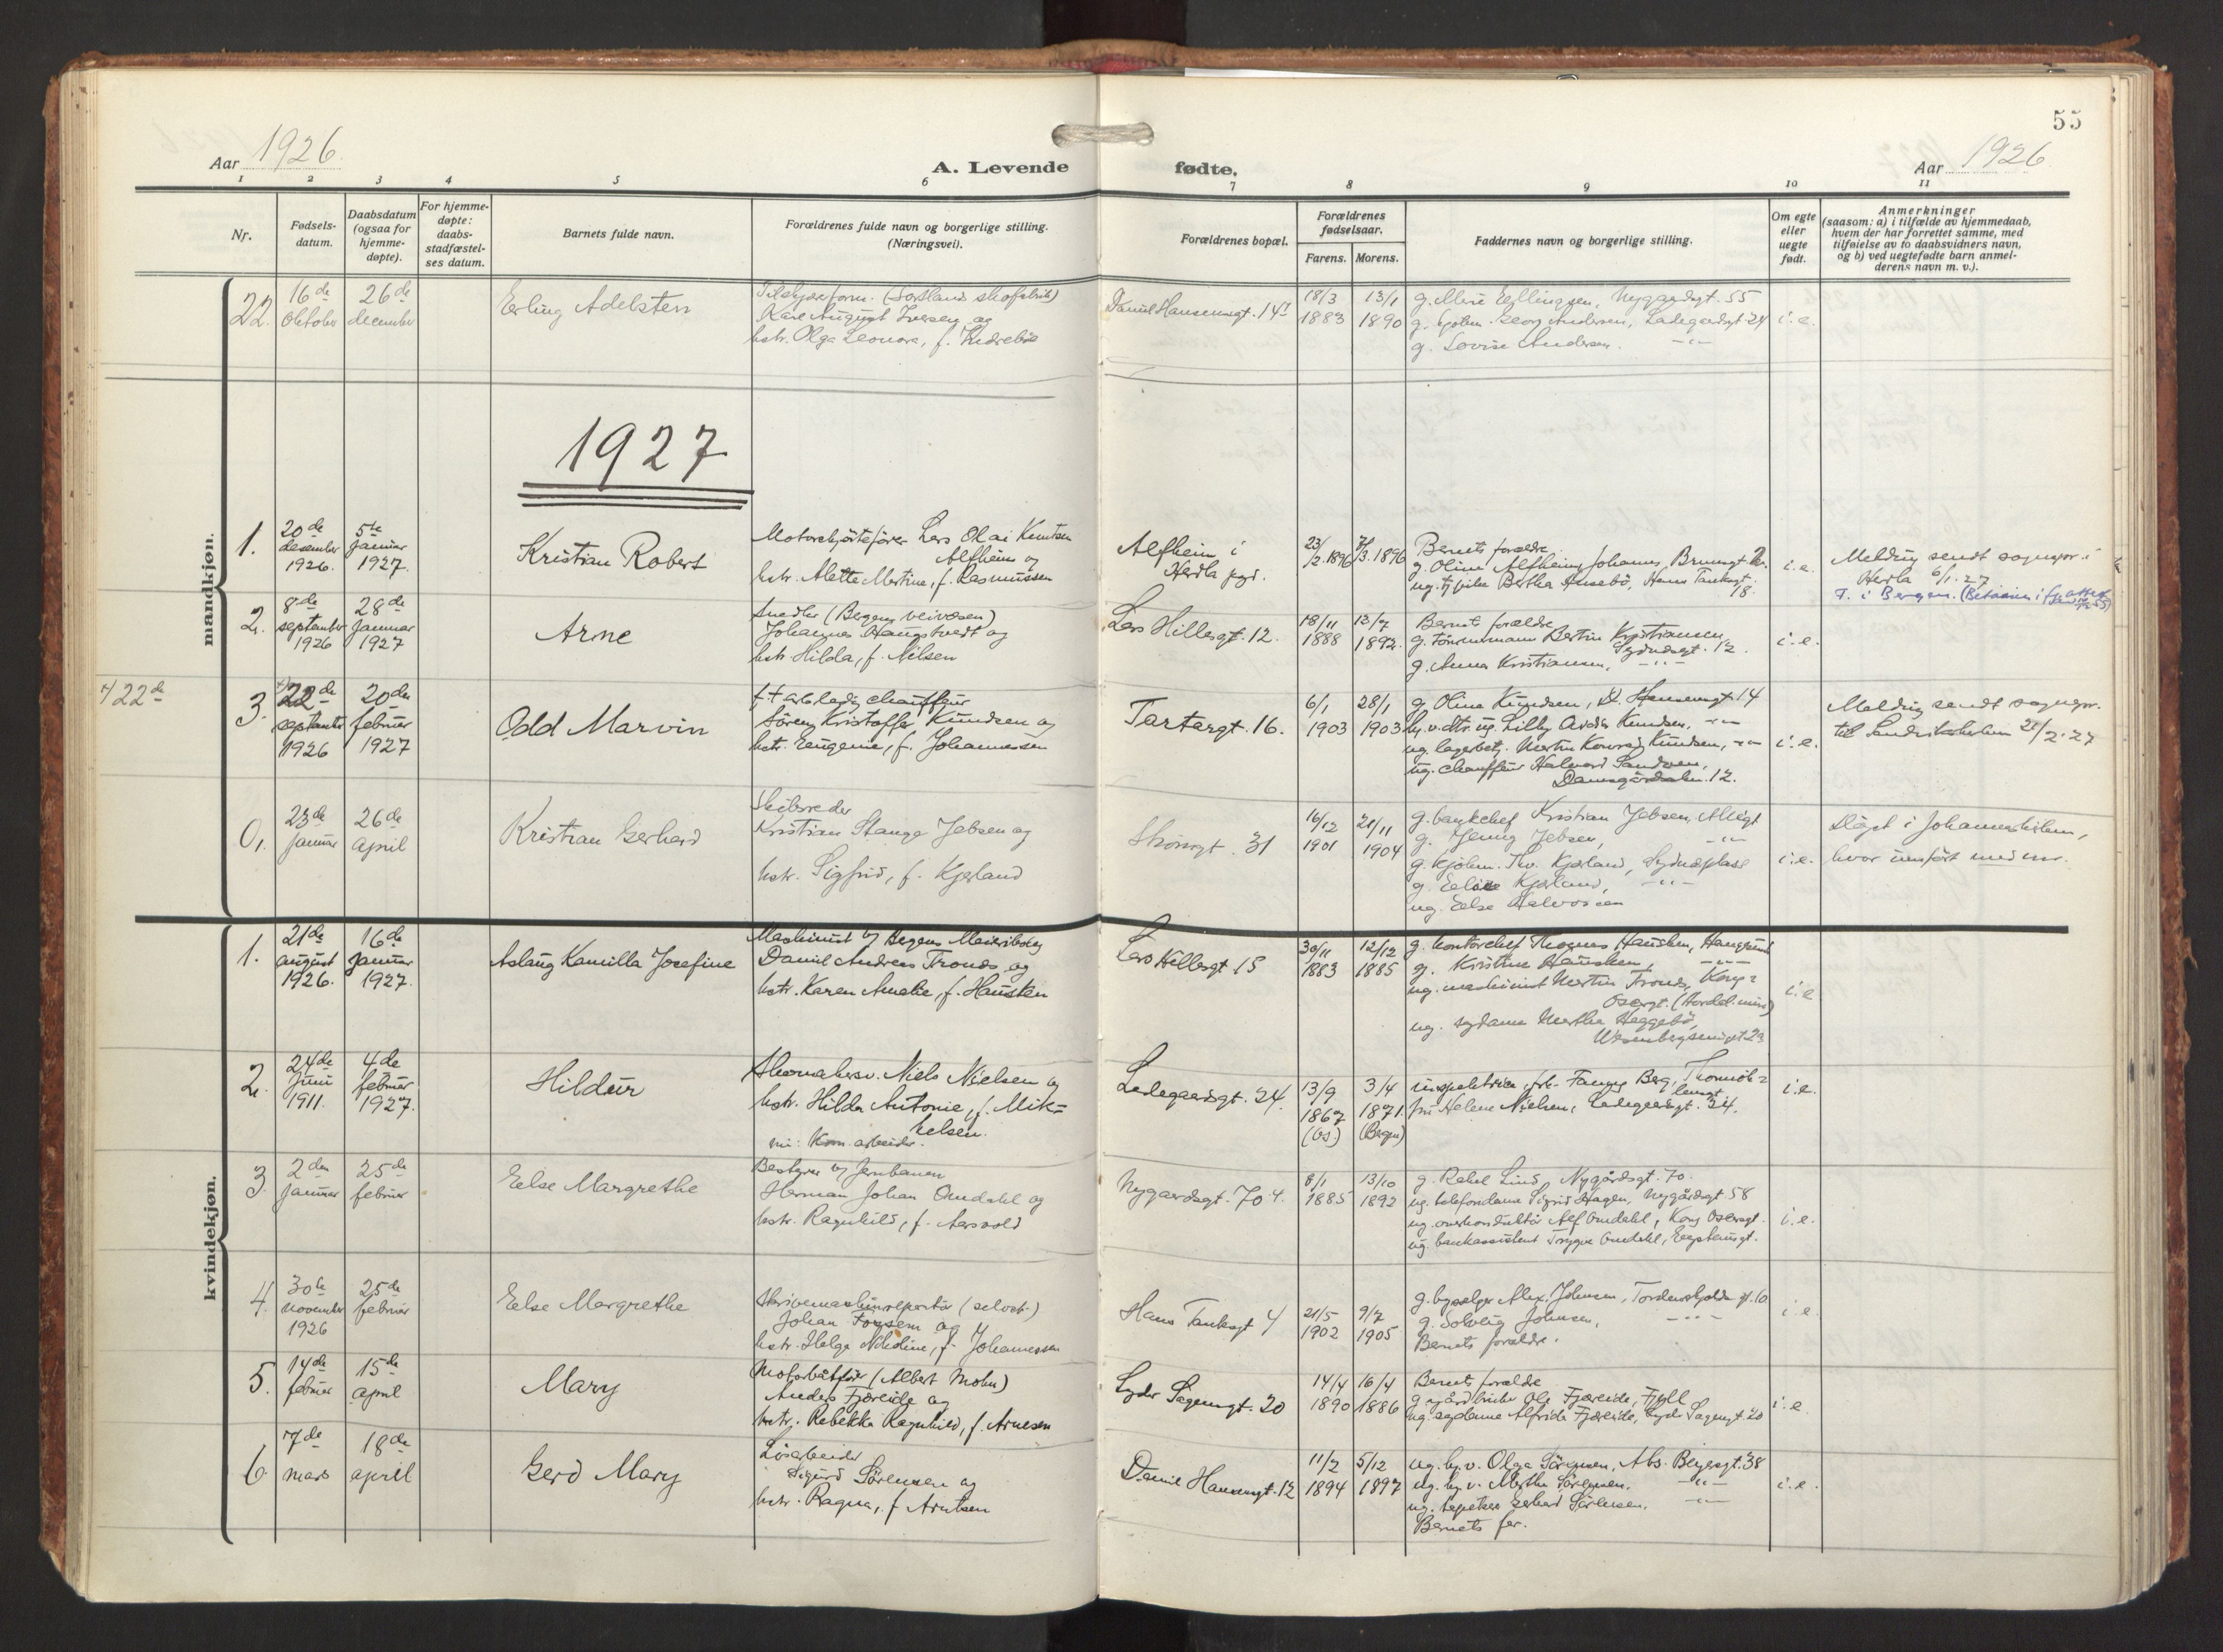 55
Aar 1926.
A. Levende fødte.
Aar 1926
1 2 3 4 5 6 7 8 9 10 11
Nr.
Fødsels-
datum.
Daabsdatum
(ogsaa for
hjemme-
døpte).
For hjemme-
døpte:
daabs-
stadfæstel-
ses datum.
Barnets fulde navn.
Forældrenes fulde navn og borgerlige stilling.
(Næringsvei).
Forældrenes bopæl.
Forældrenes
fødselsaar.
Farens. Morens.
Faddernes navn og borgerlige stilling.
Om egte
eller
uegte
født.
Anmerkninger
(saasom: a) i tilfælde av hjemmedaab,
hvem der har forrettet samme, med
tilføielse av to daabsvidners navn,
og b) ved uegtefødte barn anmel-
derens navn m. v.).
mandkjøn.
22.
16de oktober
26de december
Erling Adelsten
Karl August Iversen og
hstr. Olga Leonora, f.
Daniel Hansensgt. 14
18/3 1883
13/1 1890
Nygaardsgt. 55
Georg Andersen, Ladegaardsgt 24
g. Lovise Andersen. -"-
i. e.
1927
1.
20de desember 1926.
5te januar 1927.
Kristian Robert
Lars Olai Knutsen
Alfheim og
hstr. Alette Martine, f. Rasmussen
Alfheim i
Herdla pgd.
23/2.1896
3.1896
Barnets forældre
g. Oline Alfheim, Johannes Brunsgt
Bertha Husebö, Hans Tanksgt. 18.
i. e.
Melding sendt sognepr. i
Herdla 6/1 27
2.
8de september 1926
28de januar 1927
Arne
(Bergens veivæsen)
Johannes Haugstvedt og
hstr. Hilda, f. Nilsen
Lars Hillesgt. 12.
18/11 1888
13/7 1892.
Barnets forældre
g. tömmermann Bertin Kristiansen,
Sydnesgt. 12.
g. Anna Kristiansen, -"-
i. e.
22de
3.
22de september 1926
20de februar 1927
Odd Marvin
arb.ledig chauffør
Sören Kristoffer Knudsen og
hstr. Eugenie, f. Johannessen
Tartargt. 16.
6/1 1903
28/1 1903
g. Oline Knudsen, D. Hansensgt. 14
ug. Lilly Knudsen, -"-
ug. lagerbetj. Martin Konrad Knudsen, -"-
ug. chauffør Halvard Sandven,
Damsgårdsalm. 12.
i. e.
Melding sendt sognepr.
til Sandvikskirken 21/2.27
0.
23de januar
26de april
Kristian Gerhard
Skibsreder
Kristian Stange Jebsen og
hstr. Sigfrid, f. Kjerland
Strömgt. 31
16/12 1901
21/11 1904
g. bankchef Kristian Jebsen, Allégt
g. Jenny Jebsen, -"-
g. kjøbm. Kjerland, Sydnesplass
g. Kjerland, -"-
ug. Else Halvorsen
i. e.
Döpt i Johanneskirken,
hvor innført med nr.
kvindekjøn.
1.
21de august 1926.
16de januar 1927.
Aslaug Kamilla Josefine
Maskinist v/ Bergens Meieribolag
Daniel Andreas Tronds og
hstr. Karen Amalie, f. Hausken
Lars Hillesgt 15
30/11 1883
12/12 1885
g. kontorchef Thomas Hausken,
g. Kristine Hausken, -"-
ug. maskinist Martin Tronds, Kong
Oscarsgt.
ug. sydame Martha Haggebö,
i. e.
2.
24de juni 1911.
4de februar 1927.
Hildur
Skomakersv. Niels Nielsen og
hstr. Hilda Antonie, f. Mik=
kelsen.
nu: Kom. arbeider.
Ladegaardsgt. 24
13/9 1867 (Os)
3/4 1871. (Bergen)
inspektrice, frk. Fanny Berg,
fru Helene Nielsen, Ladegaardsgt. 34.
i. e.
3.
2den januar
25de februar
Else Margrethe
Bestyrer v/ Jernbanen
Herman Johan Omdahl og
hstr. Ragnhild, f. Aasvold
Nygaardsgt. 70 4.
8/1 1885
13/10 1892
g. Rakel Lind, Nygårdsgt. 70.
ug. telefondame Sigrid Hagen, Nygårdsgt 58
ug. overkonduktør Alf Omdahl, Kong Oscarsgt.
ug. bankassistent Trygve Omdahl,
i. e.
4.
30te november 1926
25de februar
Else Margrethe
Skrivemaskinreparatør (selvst.)
Johan og
hstr. Helga Nikoline, f. Johannessen
Hans Tanksgt 4
21/5 1902
9/7 1905
Alex. Johnsen, Tordenskjolds gt. 10
g. Solveig Johnsen, -"-
Barnets forældre.
i. e.
5.
14de februar
15de april
Mary
Motorbåtfører (Albert Mohn)
Anders Fjæreide og
hstr. Rebekka Ragnhild, f. Arnesen
Lyder Sagensgt. 20
14/4 1890
16/4 1886
Barnets forældre
g. gårdbruker Ole Fjæreide, Fjell
ug. sydame Alfrida Fjæreide, Lyder Sagensgt 20
i. e.
6.
7de mars
18de april
Gerd Mary
Løsarbeider
Sigurd Sörensen og
hstr. Ragna, f. Arntsen
Daniel Hansensgt. 12
11/2 1894
5/12 1897
ug. hv. v. Olga Sörensen, Abs. Beyersgt. 38
ug. hv. v. Martha Sörensen. -"-
ug. tapetserer Gerhard Sörensen. -"-
Barnets far.
i. e.